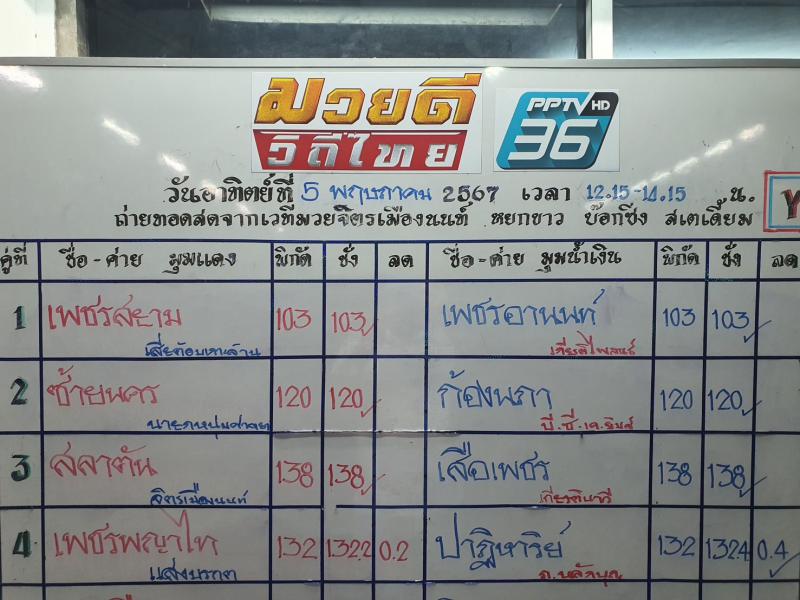 มวยดี
วิถีไทย
PPTV HD
36
วันอาทิตย์ที่ 5 พฤษภาคม 2567 เวลา 12.15-14.15 น.
ถ่ายทอดสดจากเวทีมวยจิตรเมืองนนท์ หยกขาว บ๊อกซิ่ง สเตเดี้ยม
คู่ที่ ชื่อ-ค่าย มุมแดง พิกัด ชั่ง ลด ชื่อ-ค่าย มุมน้ำเงิน พิกัด ชั่ง ลด
1 เพชรสยาม 103 103 เพชรอานนท์ 103 103
2 ซ้ายนคร 120 120 ก้องนภา 120 120
3 สลาตัน 138 138 เสือเพชร 138 138
จิตรเมืองนนท์
4 เพชรพญาไท 132 132.2 0.2 ปาฏิหาริย์ 132 132.4 0.4
แสงมรกต